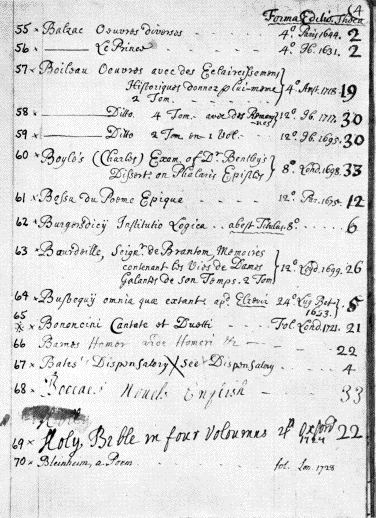 54
Forma Editio. Theca
55 × Balzac Oeuvres diverses 4.° Paris 1644. 2
56 × —— Le Prince 4.° Ib. 1631. 2
57 × Boileau Oeuvres avec des Eclaircissemens
Historiques donnez p. lui-meme 4.° Amst. 1718. 19
2 Tom.
58 × —— Ditto 4 Tom. avec des Remarques 12.° Ib. 1717. 30
59 × —— Ditto 2 Tom. in 1 Vol. 12.° Ib. 1695. 30
60 × Boyle's (Charles) Exam. of D.r Bentley's
Dissert. on Phalaris Epistles 8.° Lond. 1698. 33
61 × Bossu du Poeme Epique 12.° Par. 1675. 12
62 × Burgersdicij Institutio Logica abest Titulus. 8.° 6
63 × Bourdeille, Seign.r de Brantom, Memoires
contenant les Vies de Dames 12.° Leyd. 1699. 26
Galantes de son Temps. 2 Tom
64 × Busbequij omnia quæ extant ap.d Elzevir 24.° Lug. Bat. 1633. 5
65
× Bononcini Cantate et Duetti Fol. Lond. 1721. 21
66 Barnes Homer vide Homeri 22
67 × Bates' Dispensatory × see Dispensatory 4
68 × Boccace Novels English 33
Holy
69 × Holy Bible in four Voloumns Oxford 22
70 × Bleinheim, a Poem fol. Lon. 1728